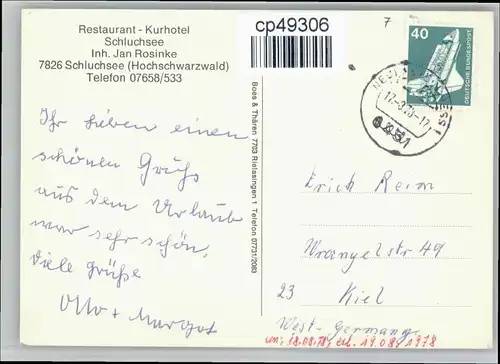 Restaurant - Kurhotel
Schluchsee
Inh. Jan Rosinke
7826 Schluchsee (Hochschwarzwald)
Telefon 07658/533
cp49306
7
40
DEUTSCHE BUNDESPOST
Boes & Thären 7703 Rielasingen 1 Telefon 07731/2083
Ihr lieben einen
schönen Gruß
aus dem Urlaub
war sehr schön,
Viele grüße
Otto + Margot
Erich Reim
Wrangelstr 49
23 Kiel
West-Germany
18.08.78, 19.08.1978